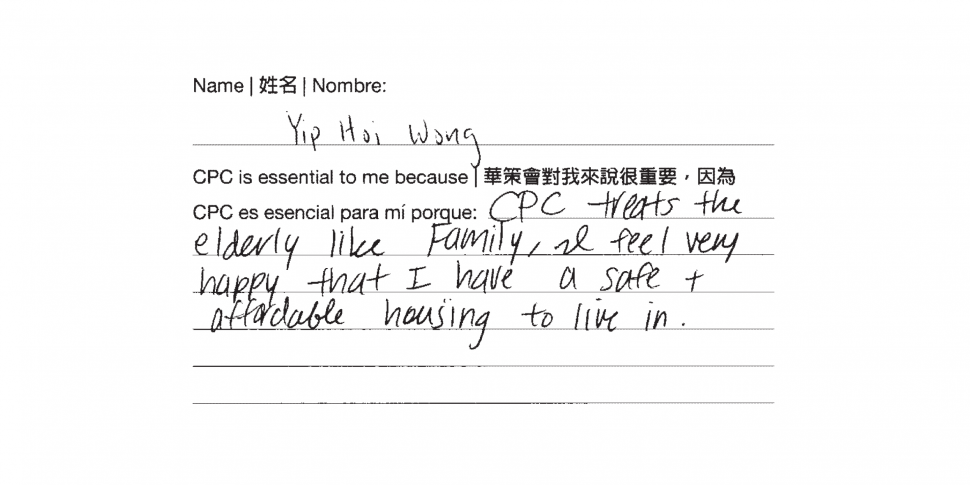 Name | 姓名 | Nombre:
Yip Hoi Wong
CPC is essential to me because | 華策會對我來說很重要，因為
CPC es esencial para mí porque: CPC treats the
elderly like Family, I feel very
happy that I have a safe +
affordable housing to live in.